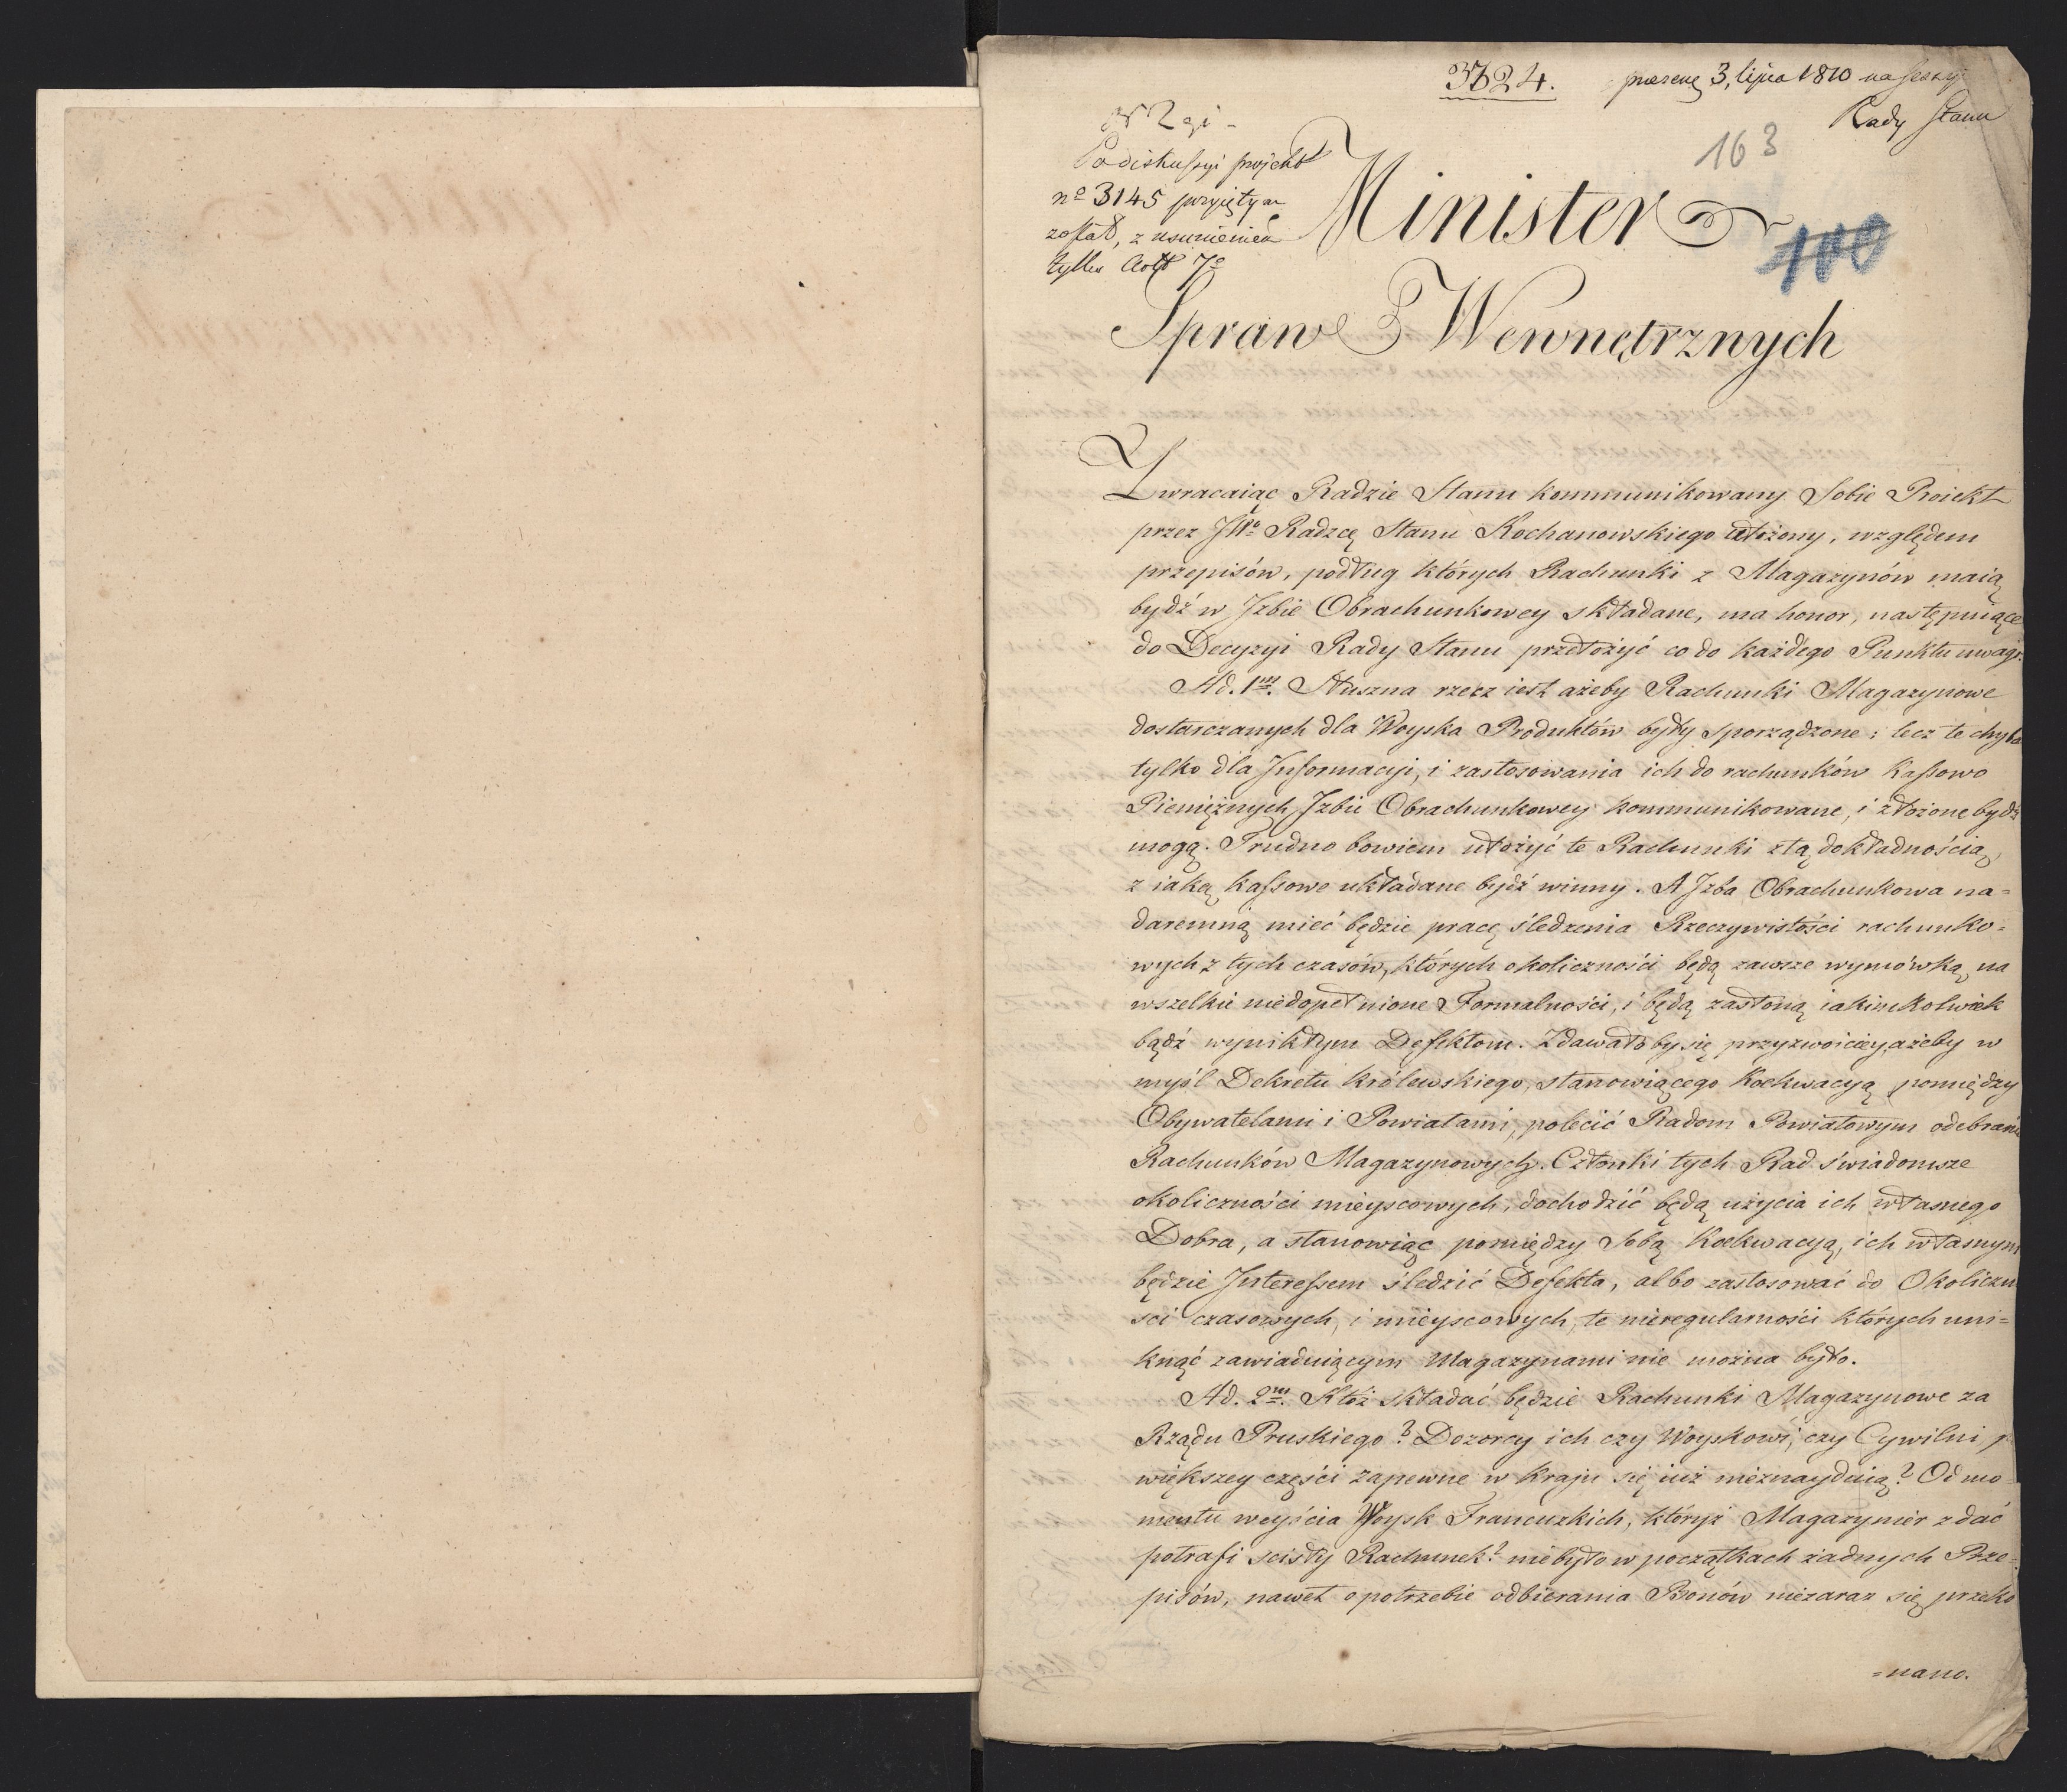 3624. praesent 3, lipca 1810 na sessyi
Rady Stanu
163
Po diskussyi projekt
no 3145 przyiętym
został, z usunieniem
tylko Artt 7o
Minister
100
Spraw Wewnętrznych
Zwracaiąc Radzie Stanu kommunikowany Sobie Proiekt
przez JWo Radzcę Stanu Kochanowskiego ułożony, względem
przepisów, podług których Rachunki z Magazynów maią
bydź w Jzbie Obrachunkowey składane, ma honor, następuiące
do Decyzyi Rady Stanu przedłożyć co do każdego Punktu uwagi.
Ad. 1m. Słuszna rzecz iest ażeby Rachunki Magazynowe
dostarczanych dla Woyska Produktów były sporządzone; lecz te chyba
tylko dla Jnformacyi, i zastosowania ich do rachunków Kassowo
Pieniężnych Jzbie Obrachunkowey kommunikowane, i złożone bydź
mogą. Trudno bowiem ułożyć te Rachunki z tą dokładnością,
z iaką Kassowe układane bydź winny. A Jzba Obrachunkowa na=
daremną mieć będzie pracę śledzenia Rzeczywistości rachunko=
wych z tych czasów, których okoliczności będą zawsze wymówką na
wszelkie niedopełnione Formalności, i będą zasłoną iakimkolwiek
bądź wynikłym Defektom. Zdawałoby się przyzwoiciey, ażeby w
myśl Dekretu Królewskiego, stanowiącego Koekwacyą pomiędzy
Obywatelami i Powiatami, polecić Radom Powiatowym odebranie
Rachunków Magazynowych. Członki tych Rad świadomsze
okoliczności mieyscowych, dochodzić będą użycia ich własnego
Dobra, a stanowiąc pomiędzy Sobą Koekwacyą, ich własnym
będzie Jnteressem śledzić Defekta, albo zastosować do Okoliczno
ści czasowych, i mieyscowych, te nieregularności których uni=
knąć zawiaduiącym Magazynami nie można było.
Ad. 2m. Któż składać będzie Rachunki Magazynowe za
Rządu Pruskiego? Dozorcy ich czy Woyskowi, czy Cywilni p
większey części zapewne w Kraju się iuż nieznayduią? Od mo
mentu weyścia Woysk Francuzkich, któryż Magazynier zdać
potrafi scisły Rachunek? niebyło w początkach żadnych Prze=
pisów, nawet o potrzebie odbierania Bonów niezaraz się przeko
=nano.